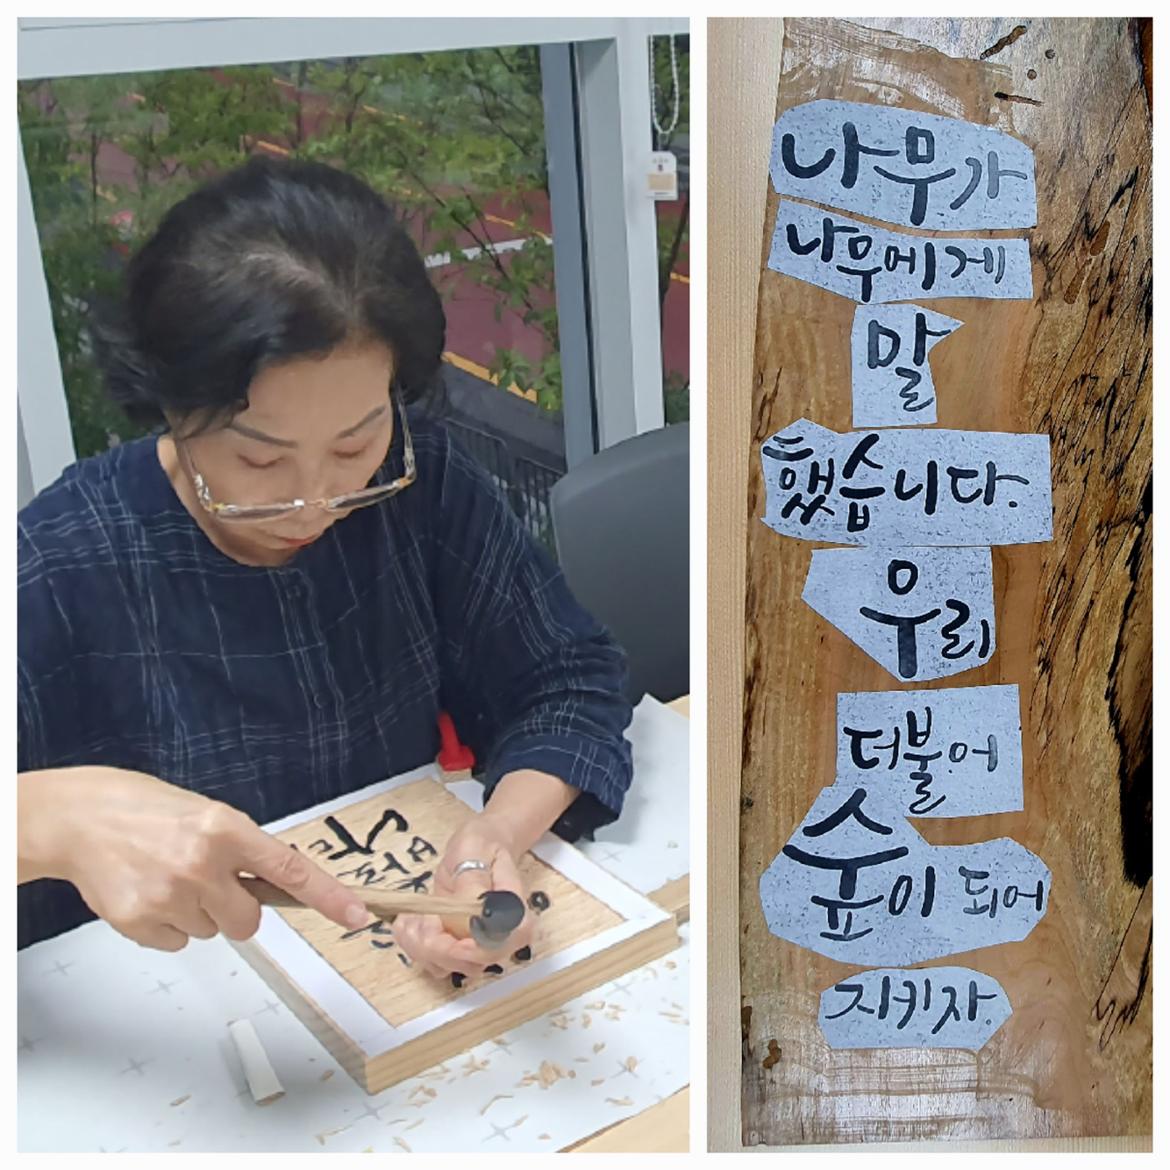 나무가
나무에게
말
했습니다.
우리
더불어
숲이 되어
지키자.